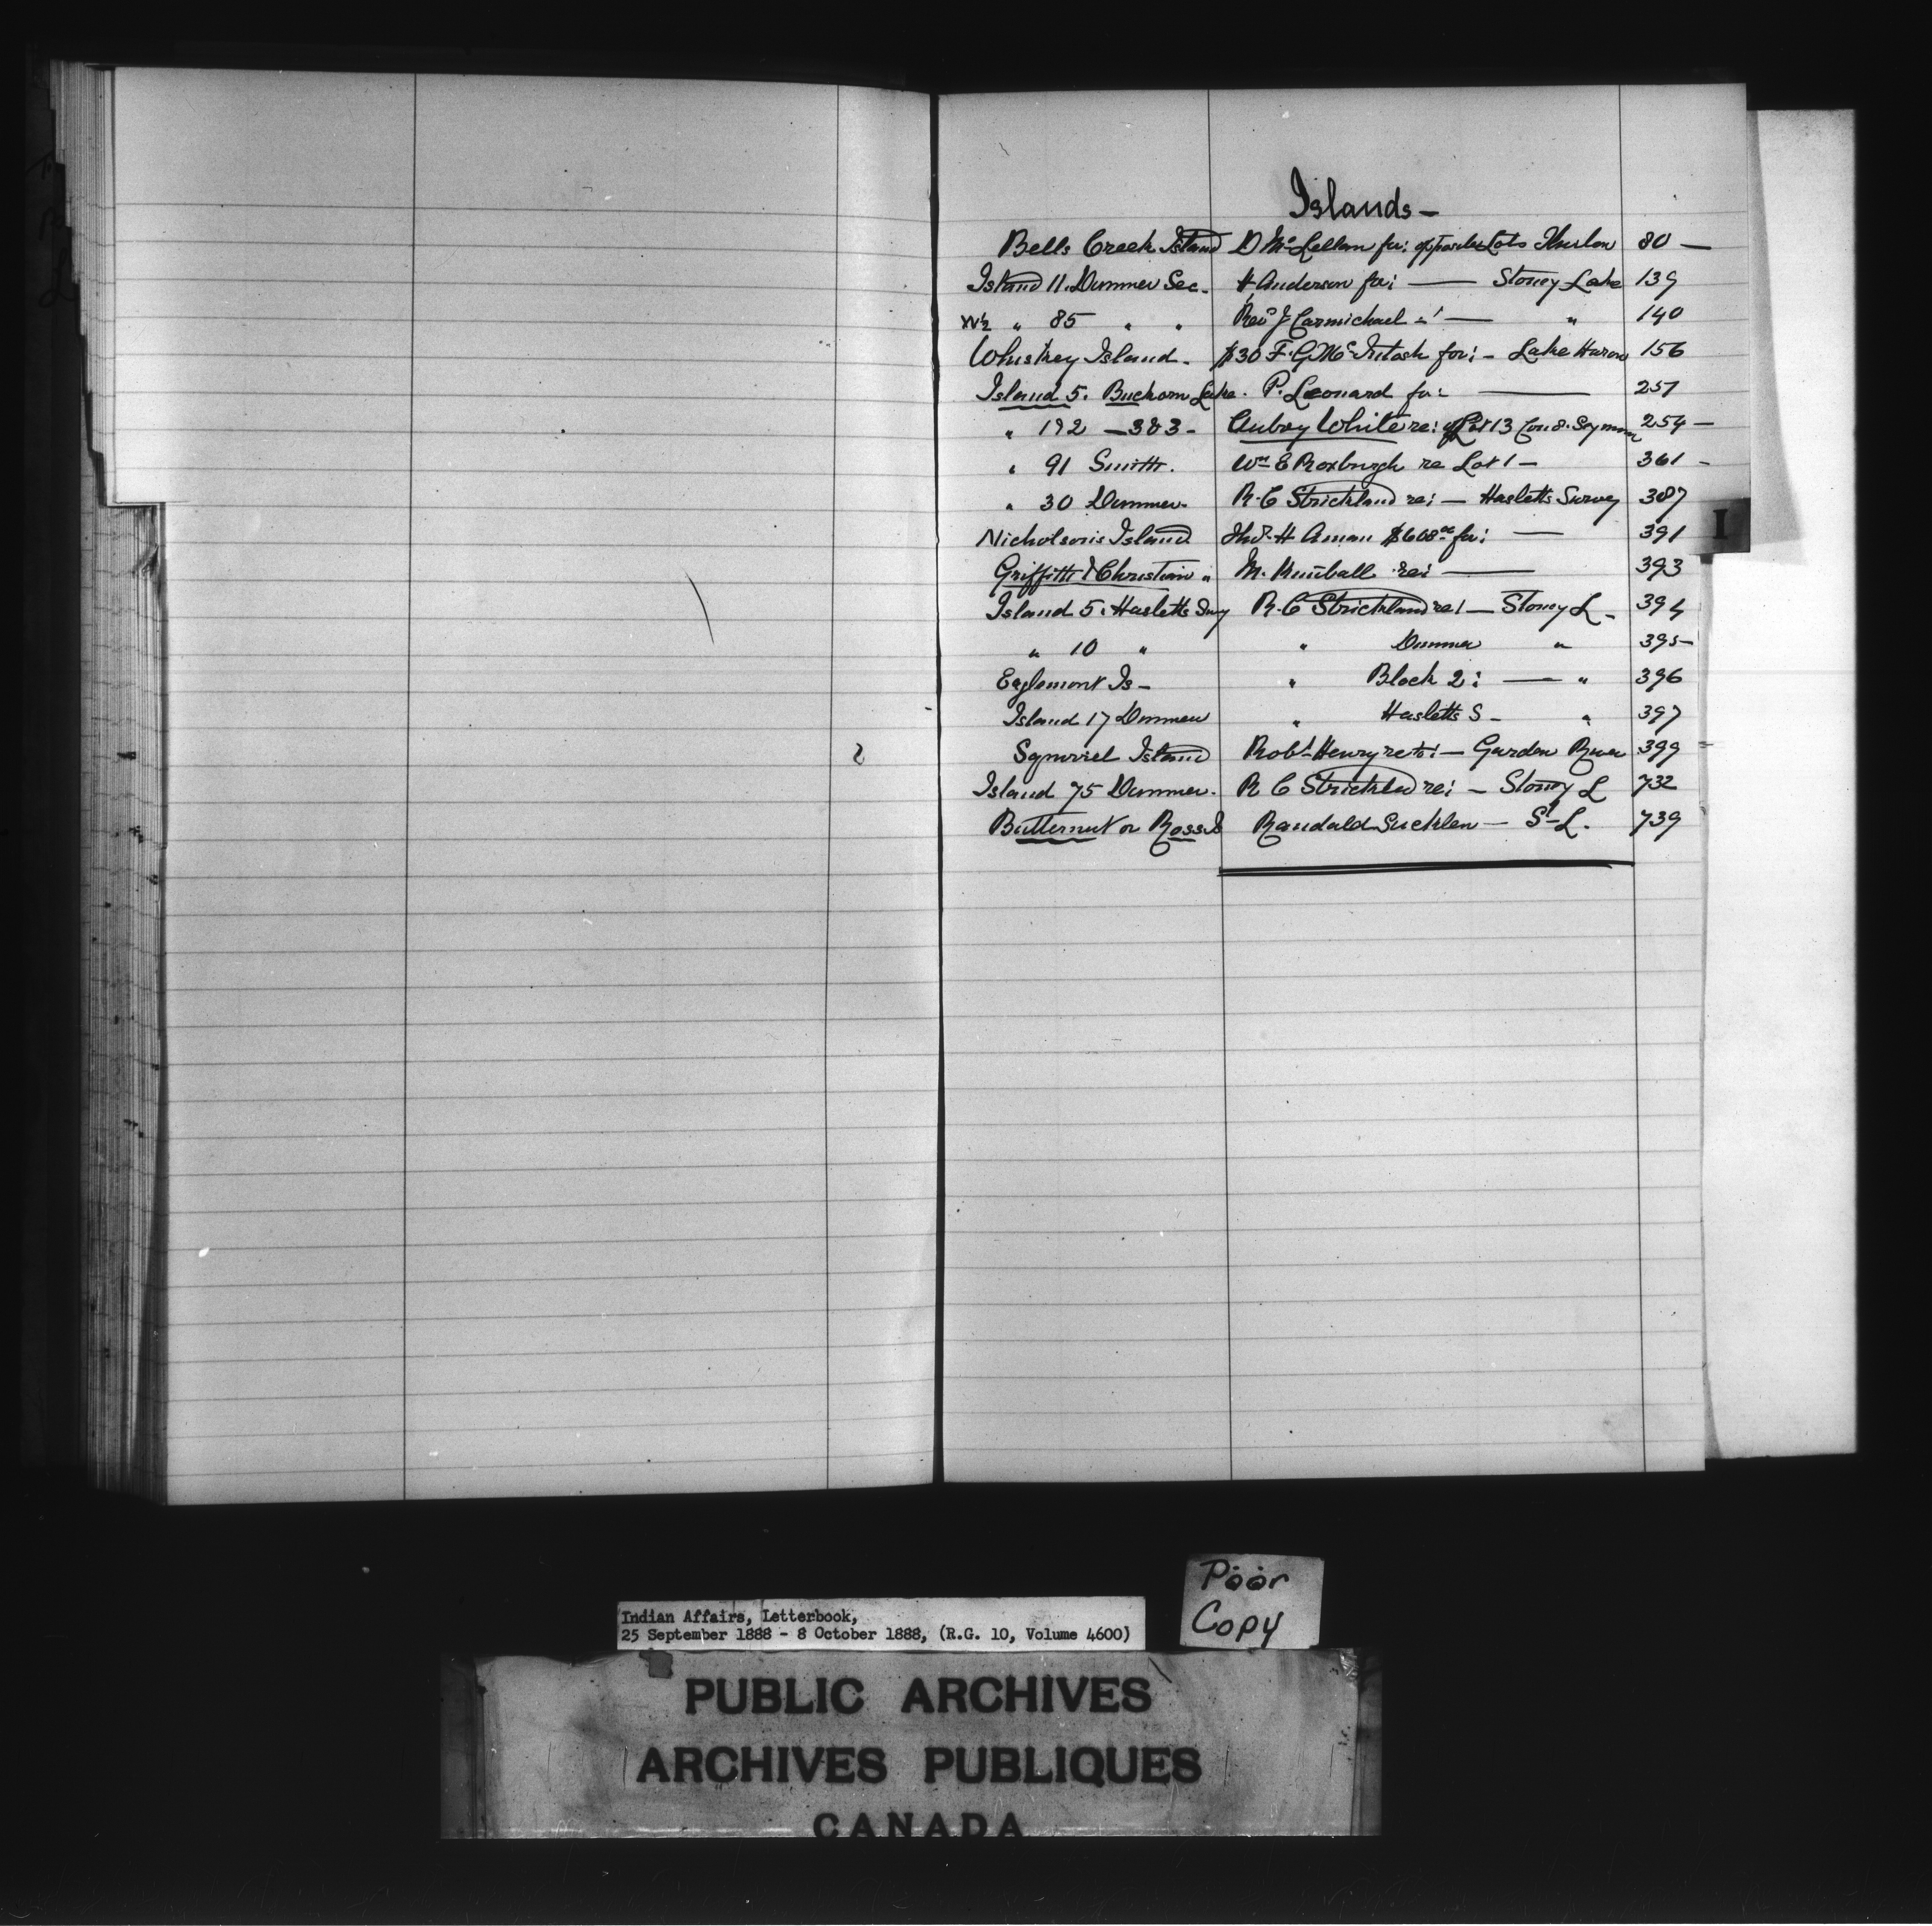 Islands —
Bells Creek Island D McLellan for: opposite Lots Thurlow 80 —
Island 11. Dummer Sec. H Anderson for: — Stoney Lake 139
W½ " 85 " " Revd J Carmichael " — " 140
Whiskey Island - $30 F. G. McIntosh for: - Lake Huron 156
Island 5. Buckorn Lake. P. Leonard for: — 257
" 192 — 383 - Aubry White re: Lot 13 Con 8. Seymour 254 —
" 91 Smith. Wm E Roxburgh re Lot 1 — 361 -
" 30 Dummer. R. C Strickland re: — Hasletts Survey 387
Nicholsons Island Thos. H Aman $608.00 for: — 391
Griffith & Christian " M. Kimball re: — 393
Island 5. Hasletts Suy R. C Strickland re: — Stoney L - 394
" 10 " " Dummer " 395 -
Eaglemont Is - " Block 2: — " 396
Island 17 Dummer " Hasletts S - " 397
Squirrel Island Robt Henry re to: — Garden River 399
Island 75 Dummer. R C Strickland re: — Stoney L 732
Butternut or Ross Is Randald — St L. 739
I
Poor
Copy
Indian Affairs, Letterbook,
25 September 1888 - 8 October 1888, (R.G. 10, Volume 4600)
PUBLIC ARCHIVES
ARCHIVES PUBLIQUES
CANADA